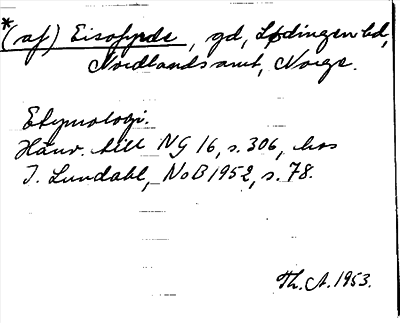 *(af) Eisofyrde, gd, Lødingen hd,
Nordlands amt, Norge.
Etymologi.
Hänv. till NG 16, s. 306, hos
I. Lundahl, NoB 1952, s. 78.
Th. A. 1953.